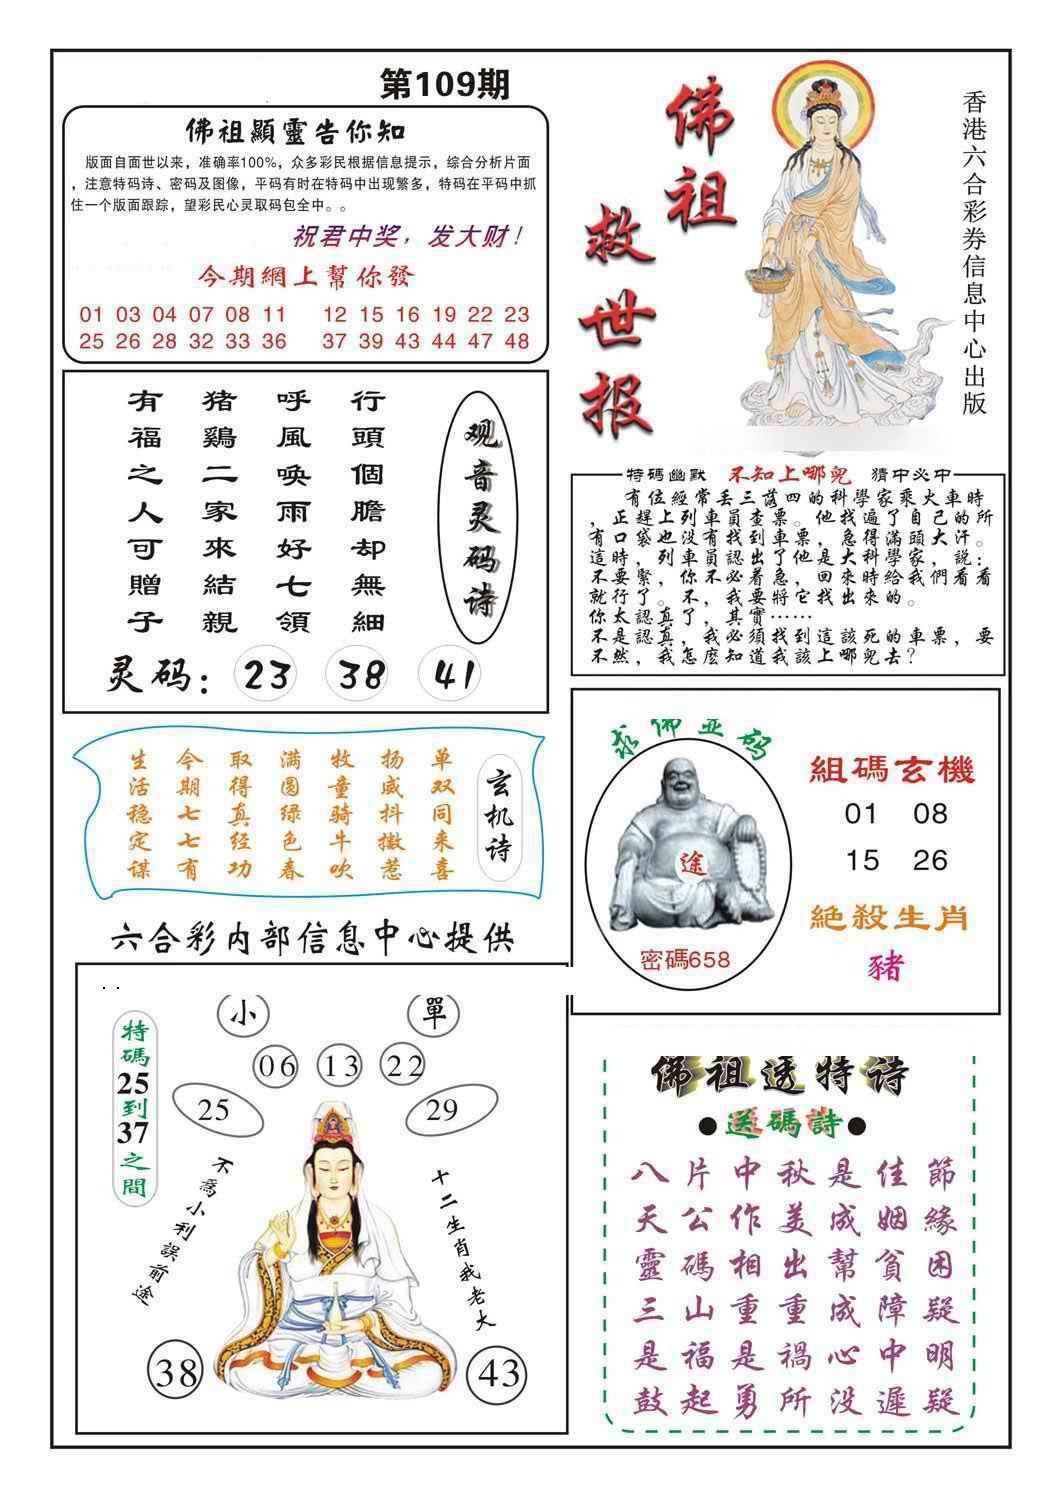 第109期
佛祖顯靈告你知
版面自面世以来，准确率100%，众多彩民根据信息提示，综合分析片面
，注意特码诗、密码及图像，平码有时在特码中出现繁多，特码在平码中抓
住一个版面跟踪，望彩民心灵取码包全中。。
祝君中奖，发大财！
今期網上幫你發
01 03 04 07 08 11 12 15 16 19 22 23
25 26 28 32 33 36 37 39 43 44 47 48
佛祖
救世报
香港六合彩券信息中心出版
观音灵码诗
行頭個膽却無細
呼風喚雨好七領
猪鷄二家來結親
有福之人可贈子
灵码：23 38 41
特碼幽默 不知上哪兒 猜中必中
有位經常丢三落四的科學家乘火車時
，正趕上列車員查票。他找遍了自己的所
有口袋也没有找到車票，急得滿頭大汗。
這時，列車員認出了他是大科學家，説：
不要緊，你不必着急，回來時給我們看看
就行了。不，我要將它找出來的。
你太認真了，其實……
不是認真，我必須找到這該死的車票，要
不然，我怎麽知道我該上哪兒去？
玄机诗
单双同来喜
扬威抖擞惹
牧童骑牛吹
满圆绿色春
取得真经功
今期七七有
生活稳定谋
求佛並码
途
密碼658
組碼玄機
01 08
15 26
絶殺生肖
豬
六合彩内部信息中心提供
特碼25到37之間
小 單
06 13 22
25 29
不爲小利誤前途
十二生肖我老大
38 43
佛祖透特诗
●送碼詩●
八片中秋是佳節
天公作美成姻緣
靈碼相出幫貧困
三山重重成障疑
是福是禍心中明
鼓起勇所没遲疑